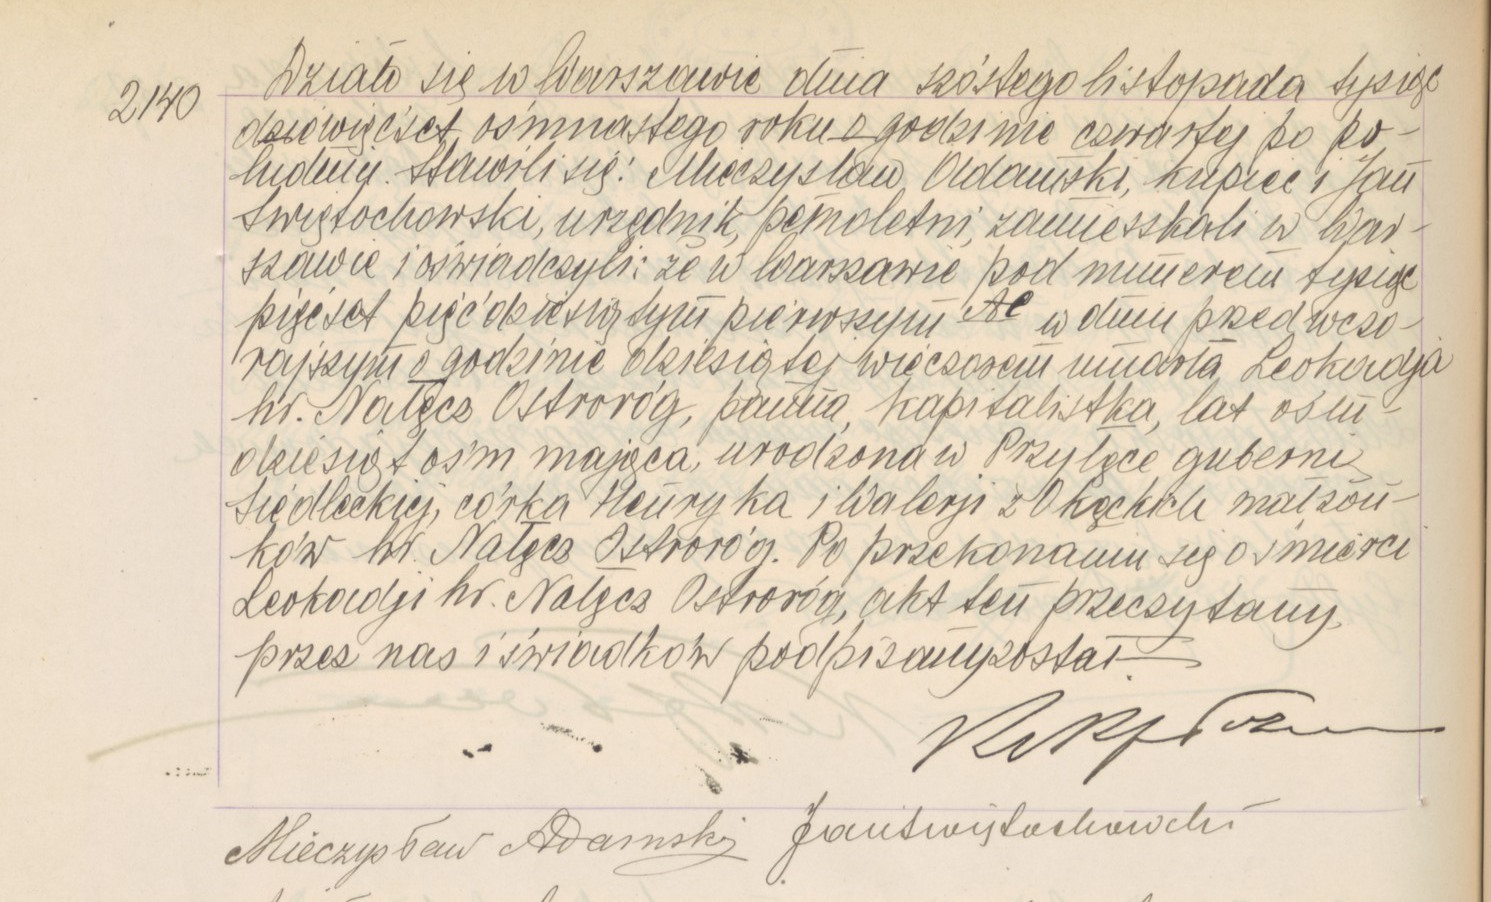 2140
Działo się w Warszawie dnia szóstego listopada tysiąc
dziewięćset ośmnastego roku o godzinie czwartej po po-
łudniu. Stawili się: Mieczysław Adamski, kupiec i Jan
Świętochowski, urzędnik, pełnoletni, zamieszkali w War-
szawie i oświadczyli: że w Warszawie pod numerem tysiąc
pięćset pięćdziesiątym pierwszym AC w dniu przedwczo-
rajszym o godzinie dziesiątej wieczorem umarła Leokadja
hr. Nałęcz Ostroróg, panna, kapitalistka, lat ośm-
dziesiąt ośm mająca, urodzona w Przyłęce guberni
Siedleckiej, córka Henryka i Walerji z Okęckich małżon-
ków hr. Nałęcz Ostroróg. Po przekonaniu się o śmierci
Leokadji hr. Nałęcz Ostroróg, akt ten przeczytany,
przez nas i świadków podpisany został.
Mieczysław Adamski Jan Świętochowski